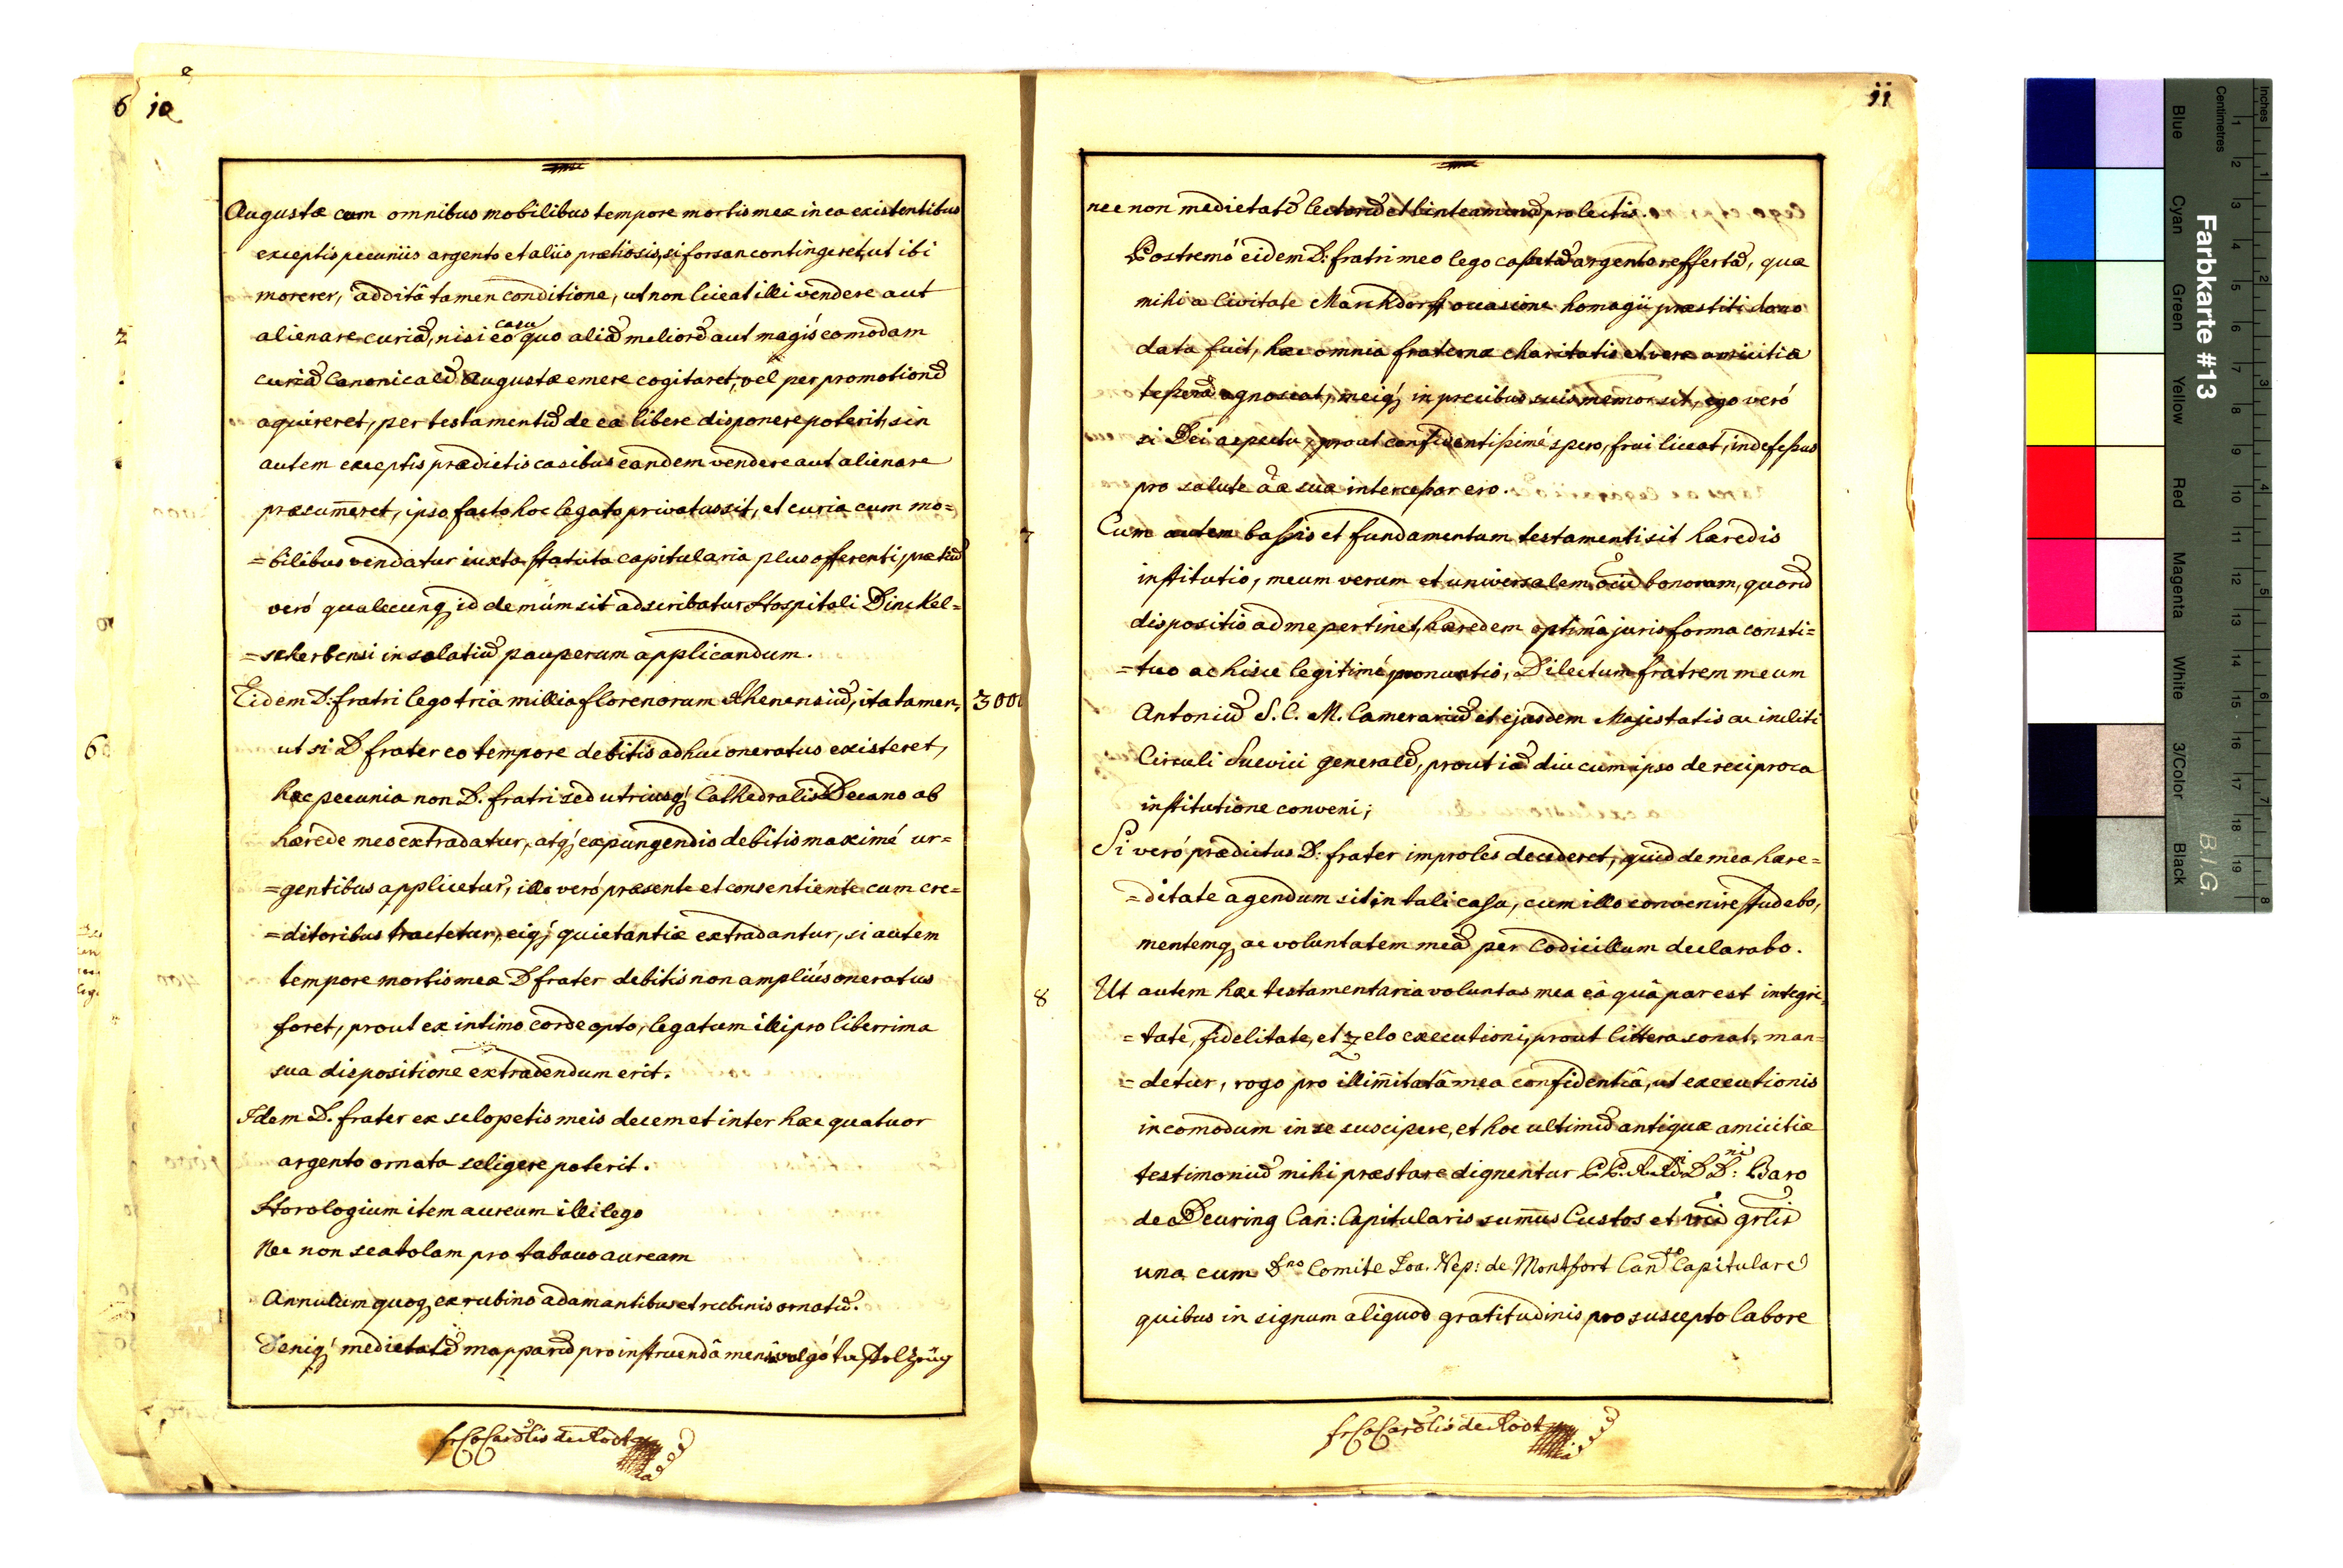 10
Augustæ cum omnibus mobilibus tempore mortis meæ in ea existentibus
exceptis pecuniis argento et aliis prætiosis, si forsan contingeret, ut ibi
morerer, additâ tamen conditione, ut non liceat illi vendere aut
alienare curiã, nisi eo casu quo aliã meliorẽ aut magis comodam
curiã Canonicalẽ Augustæ emere cogitaret, vel per promotionẽ
aquireret, per testamentũ de ea libere disponere poterit, sin
autem exceptis prædictis casibus eandem vendere aut alienare
præsum̄eret, ipso facto hoc legato privatus sit, et curia cum mo=
=bilibus vendatur iuxta statuta capitularia plus offerenti, prætiũ
veró qualecunq; id demùm sit adscribatur Hospitali Dinckel=
=scherbensi in solatiũ pauperum applicandum.
Eidem D: fratri lego tria millia florenorum Rhenensiũ, ita tamen, 3000
ut si D frater eo tempore debitis adhuc oneratus existeret,
hæc pecunia non D. fratri sed utriusq; Cathedralis Decano ab
hærede meo extradatur, atq; expungendis debitis maximé ur=
=gentibus applicetur, illo veró præsente et consentiente cum cre=
=ditoribus tractetur, eiq; quietantiæ extradantur, si autem
tempore mortis meæ D frater debitis non ampliús oneratus
foret, prout ex intimo corde opto, legatum illi pro liberrima
sua dispositione extradendum erit.
Idem D. frater ex sclopetis meis decem et inter hæc quatuor
argento ornata seligere poterit.
Horologium item aureum illi lego
Nec non scatolam pro tabaco auream
Annulum quoq; ex rubino adamantibus et rubinis ornatũ.
Deniq; medietatẽ mapparũ pro instruendâ mensâ vulgó tafelzeüg
fr C Carolus de Rodt
11
nec non medietatẽ lectorũ et linteaminũ pro lectis.
Postremó eidem D: fratri meo lego casetã argento reffertã, quæ
mihi a Civitate Marckdorff occasione homagii præstiti dono
data fuit, hæc omnia fraternæ charitatis et veræ amicitiæ
tesseram agnoscat, meiq; in precibus suis memor sit, ego veró
si Dei aspectu, prout confidentissimé spero, frui liceat, indefessus
pro salute aæ suæ intercessor ero.
7 Cum autem bassis et fundamentum testamenti sit hæredis
institutio, meum verum et universalem oĩũ bonorum, quorũ
dispositio ad me pertinet, hæredem optimâ juris forma consti=
=tuo ac hisce legitimé pronuntio, Dilectum fratrem meum
Antoniũ S. C. M. Camerariũ et ejusdem Majestatis ac incliti
Circuli Suevici generalẽ, prout iã diu cum ipso de reciproca
institutione conveni;
Si veró prædictus D: frater improles decederet, quid de mea hære=
=ditate agendum sit in tali casu, cum illo convenire studebo,
mentemq; ac voluntatem meã per Codicillum declarabo.
8 Ut autem hæc testamentaria voluntas mea eâ quâ par est integri=
=tate, fidelitate, et zelo executioni, prout littera sonat, man=
=detur, rogo pro illim̄itatâ mea confidentiâ, ut executionis
incomodum in se suscipere, et hoc ultimũ antiquæ amicitiæ
testimoniũ mihi præstare dignentur DD: Baro
de Deuring Can: Capitularis sum̄us Custos et
una cum Dno Comite Joa. Nep: de Montfort Can: Capitulare
quibus in signum aliquod gratitudinis pro suscepto labore
fr C Carolus de Rodt
Farbkarte #13
B.I.G.
Inches
Centimetres
Blue
Cyan
Green
Yellow
Red
Magenta
White
3/Color
Black